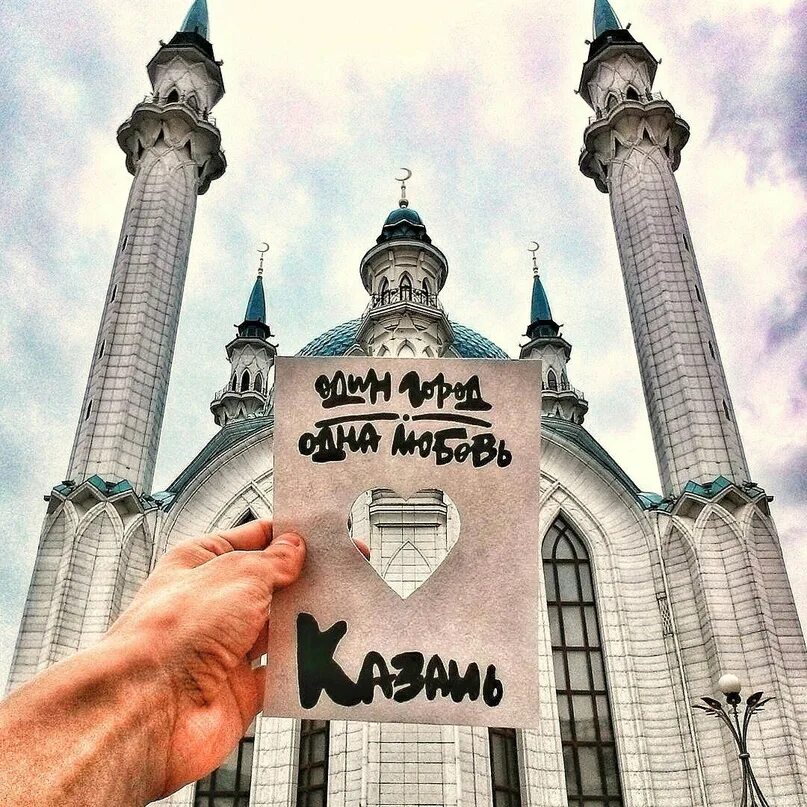 один город
одна любовь
Казань